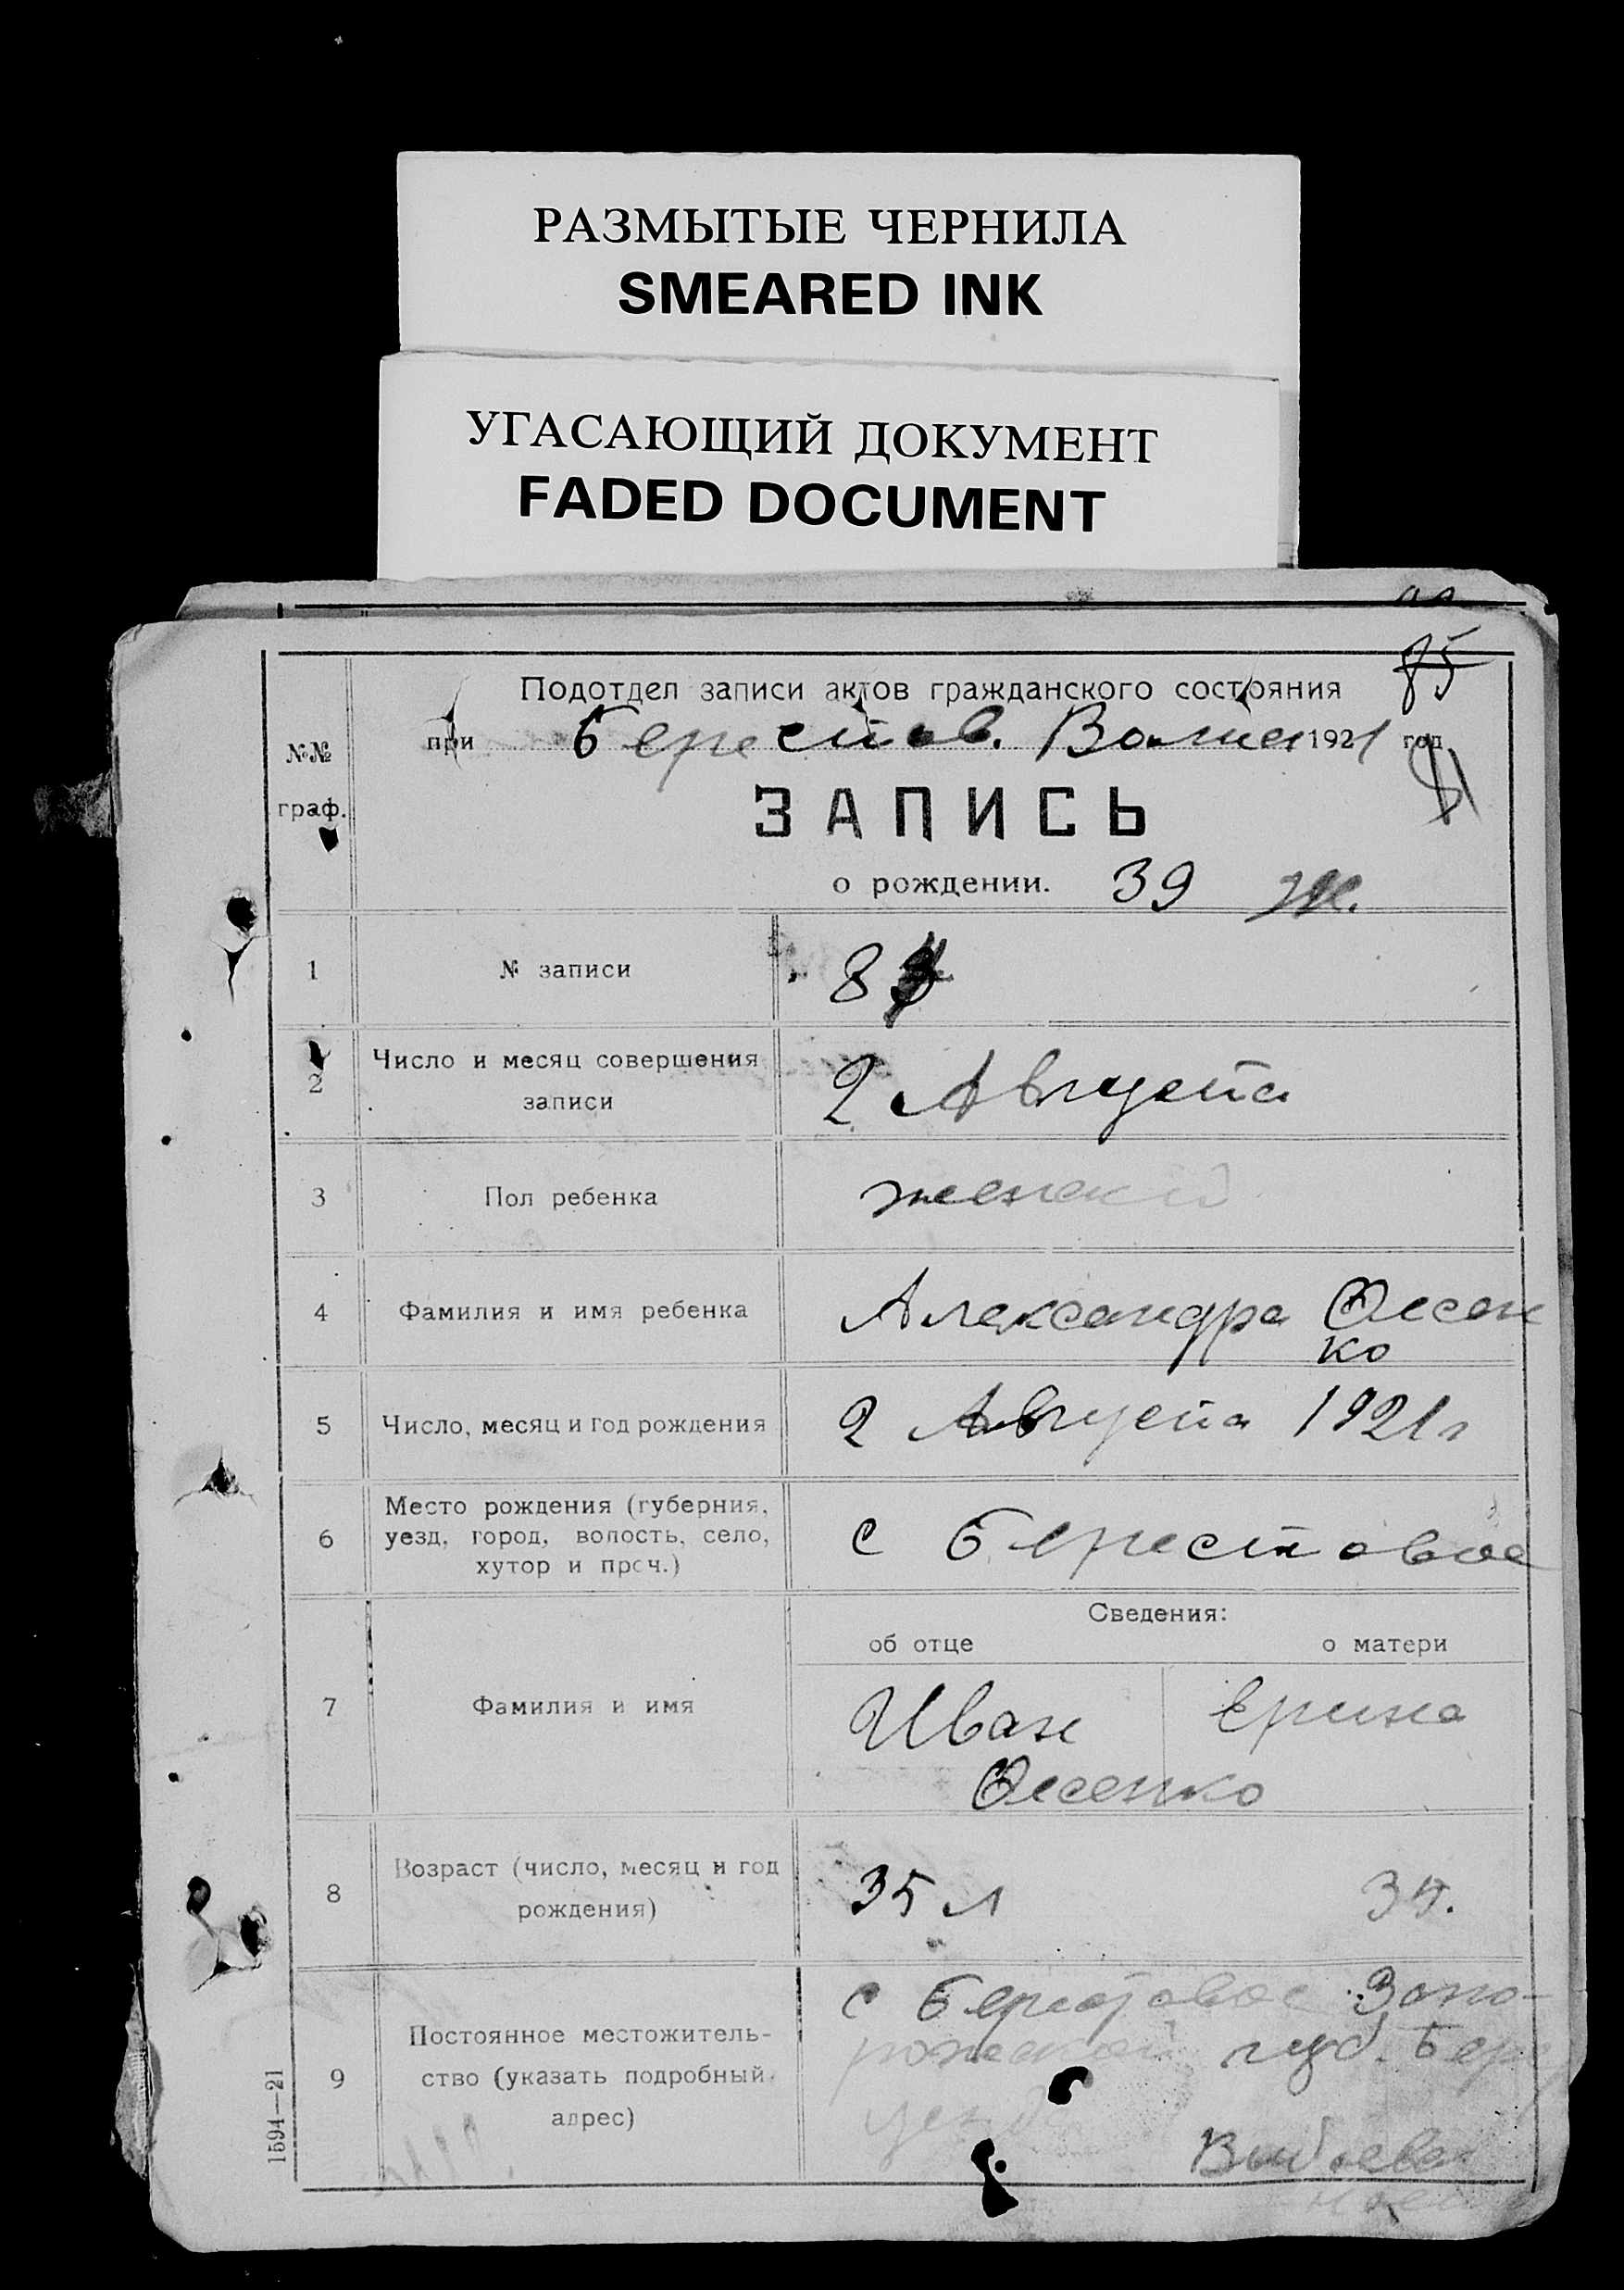 РАЗМЫТЫЕ ЧЕРНИЛА
SMEARED INK
УГАСАЮЩИЙ ДОКУМЕНТ
FADED DOCUMENT
85
Подотдел записи актов гражданского состояния
при Берестов. Волиси 1921 год
№№
граф.
ЗАПИСЬ
о рождении. 39 ж.
1 № записи 8
2 Число и месяц совершения
записи 2 Августа
3 Пол ребенка женский
4 Фамилия и имя ребенка Александра Фесен
ко
5 Число, месяц и год рождения 2 Августа 1921 г
6 Место рождения (губерния,
уезд, город, волость, село,
хутор и проч.) с Берестовое
Сведения:
об отце о матери
7 Фамилия и имя Иван Ерина
Фесенко
8 Возраст (число, месяц и год
рождения) 35 л 35.
9 Постоянное местожитель-
ство (указать подробный
адрес)
с Берестовое Запо-
рожской губ. Бер
уезд
1594—21